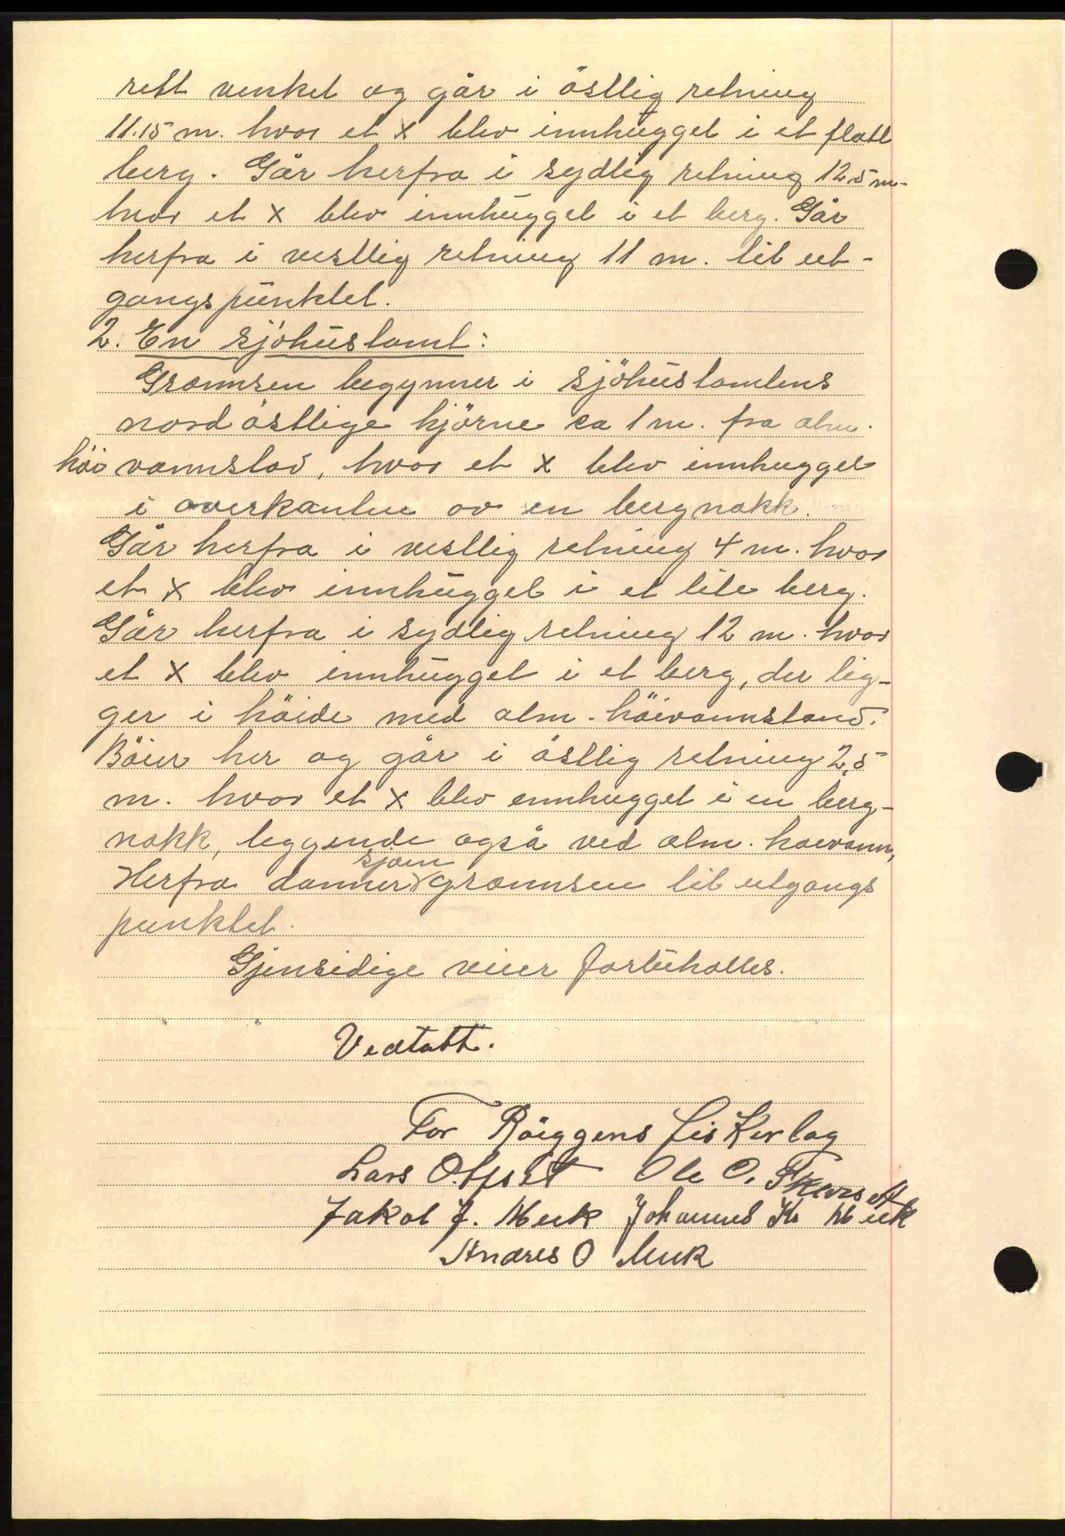 rett venkel og går i östlig retning
11.15 m. hvor et x blev innhugget i et flatt
berg. Går herfra i sydlig retning 12,5 m.
hvor et x blev innhugget i et berg. Går
herfra i vestlig retning 11 m. til ut-
gangspunktet.
2. En sjöhustomt:
Grænnsen begynner i sjöhustomtens
nordöstlige hjörne ca 1 m. fra alm.
höivannstad, hvor et x blev innhugget
i överkanten av en bergnakk.
Går herfra i vestlig retning 4 m. hvor
et x blev innhugget i et lite berg.
Går herfra i sydlig retning 12 m. hvor
et x blev innhugget i et berg, der lig-
ger i höide med alm. höivannstand.
Böier her og går i östlig retning 2,5
m. hvor et x blev innhugget i en berg-
nakk, leggende også ved alm. hoivann,
Herfra danner sjöen grænnsen til utgangs
punktet.
Gjensidige veier forbeholles.
Vedtatt.
For Röeggens Fiskerlag
Lars O. Ole O.
Jakob J. Meek Johannes K. Meek
Andres O Meek